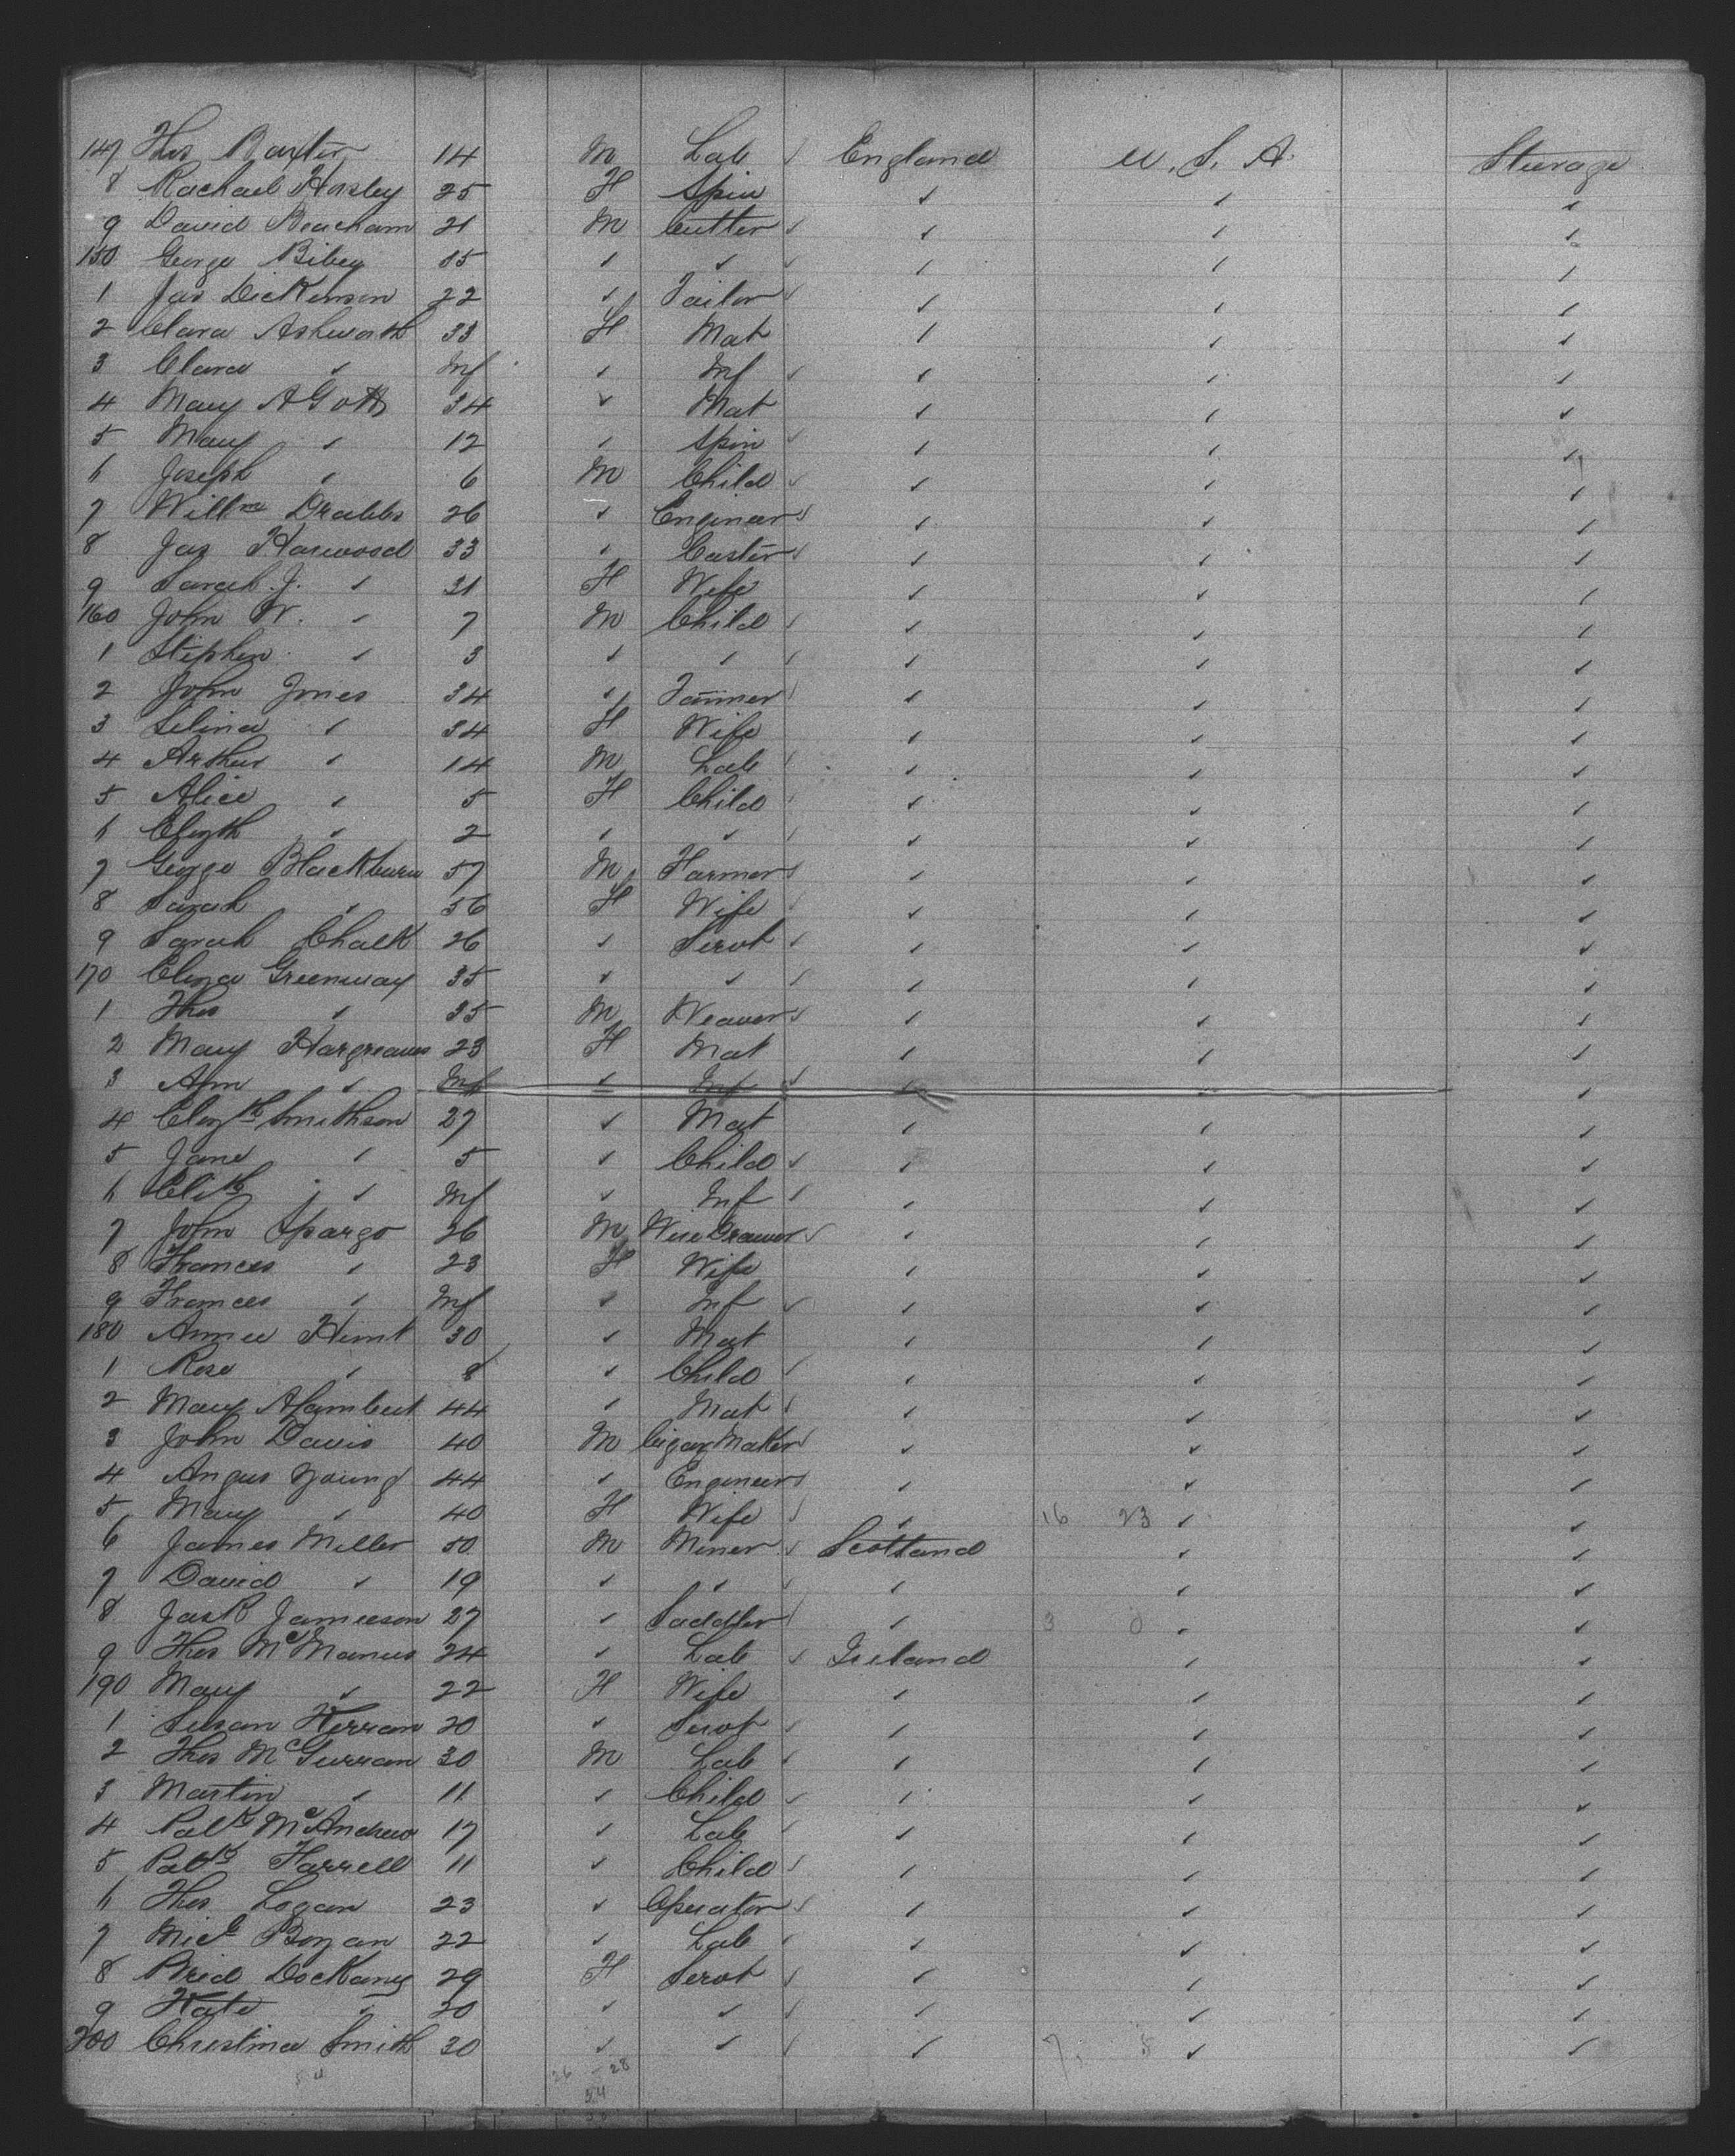 147 Thos Baxter 14 M Lab ✓ England U. S. A. Steerage
8 Rachael Horsley 25 F Spin ✓ ✓ ✓
9 David Beacham 21 M Cutter ✓ ✓ ✓ ✓
150 George Bibey ✓ ✓ ✓ ✓ ✓ ✓
1 Jas Dickinson 22 ✓ Tailor ✓ ✓ ✓ ✓
2 Clara Ashworth 33 F Mat ✓ ✓ ✓
3 Clara ✓ Inf ✓ Inf ✓ ✓ ✓ ✓
4 Mary A Gott 34 ✓ Mat ✓ ✓ ✓
5 Mary ✓ 12 ✓ Spin ✓ ✓ ✓ ✓
6 Joseph ✓ 6 M Child ✓ ✓ ✓ ✓
7 Willm Drabbs 26 ✓ Engineer ✓ ✓ ✓ ✓
8 Jas Harwood 33 ✓ Caster ✓ ✓ ✓ ✓
9 Sarah J. ✓ 31 F Wife ✓ ✓ ✓
160 John W. ✓ 7 M Child ✓ ✓ ✓ ✓
1 Stephen ✓ 3 ✓ ✓ ✓ ✓ ✓ ✓
2 John Jones 34 ✓ Tanner ✓ ✓ ✓ ✓
3 Selina ✓ 34 F Wife ✓ ✓ ✓
4 Arthur ✓ 14 M Lab ✓ ✓ ✓ ✓
5 Alice ✓ 5 F Child ✓ ✓ ✓ ✓
6 Elizth ✓ 2 ✓ ✓ ✓ ✓ ✓ ✓
7 George Blackburn 57 M Farmer ✓ ✓ ✓ ✓
8 Sarah ✓ 56 F Wife ✓ ✓ ✓ ✓
9 Sarah Chalk 26 ✓ Servt ✓ ✓ ✓ ✓
170 Eliza Greenway 35 ✓ ✓ ✓ ✓ ✓ ✓
1 Thos ✓ 35 M Weaver ✓ ✓ ✓ ✓
2 Mary Hargreaves 23 F Mat ✓ ✓ ✓
3 Ann ✓ Inf ✓ Inf ✓ ✓ ✓ ✓
4 Elizth Smithson 27 ✓ Mat ✓ ✓ ✓
5 Jane ✓ 5 ✓ Child ✓ ✓ ✓ ✓
6 Elith ✓ Inf ✓ Inf ✓ ✓ ✓ ✓
7 John Spargo 26 M Wire Drawer ✓ ✓ ✓ ✓
8 Frances ✓ 23 F Wife ✓ ✓ ✓
9 Frances ✓ Inf ✓ Inf ✓ ✓ ✓ ✓
180 Annie Hunt 30 ✓ Mat ✓ ✓ ✓
1 Rose ✓ 8 ✓ Child ✓ ✓ ✓ ✓
2 Mary A Lambert 44 ✓ Mat ✓ ✓ ✓ ✓
3 John Davis 40 M Cigar Maker ✓ ✓ ✓ ✓
4 Angus Young 44 ✓ Engineer ✓ ✓ ✓ ✓
5 Mary ✓ 40 F Wife ✓ ✓ 16 23 ✓ ✓
6 James Miller 50 M Miner ✓ Scotland ✓ ✓
7 David ✓ 19 ✓ ✓ ✓ ✓ ✓ ✓
8 Jas R Jamieson 27 ✓ Saddler ✓ ✓ 3 0 ✓ ✓
9 Thos McManus 24 ✓ Lab ✓ Ireland ✓ ✓
190 Mary ✓ 22 F Wife ✓ ✓ ✓
1 Susan Kerran 20 ✓ Servt ✓ ✓ ✓ ✓
2 Thos McGurran 30 M Lab ✓ ✓ ✓ ✓
3 Martin ✓ 11 ✓ Child ✓ ✓ ✓ ✓
4 Patk McAndrew 17 ✓ Lab ✓ ✓ ✓ ✓
5 Patk Farrell 11 ✓ Child ✓ ✓ ✓ ✓
6 Thos Logan 23 ✓ Operator ✓ ✓ ✓ ✓
7 Micl Bogan 22 ✓ Lab ✓ ✓ ✓ ✓
8 Brid Dockany 29 F Servt ✓ ✓ ✓ ✓
9 Kate ✓ 20 ✓ ✓ ✓ ✓ ✓ ✓
200 Christina Smith 30 ✓ ✓ ✓ ✓ 7 8 ✓ ✓
54 26 - 28
54